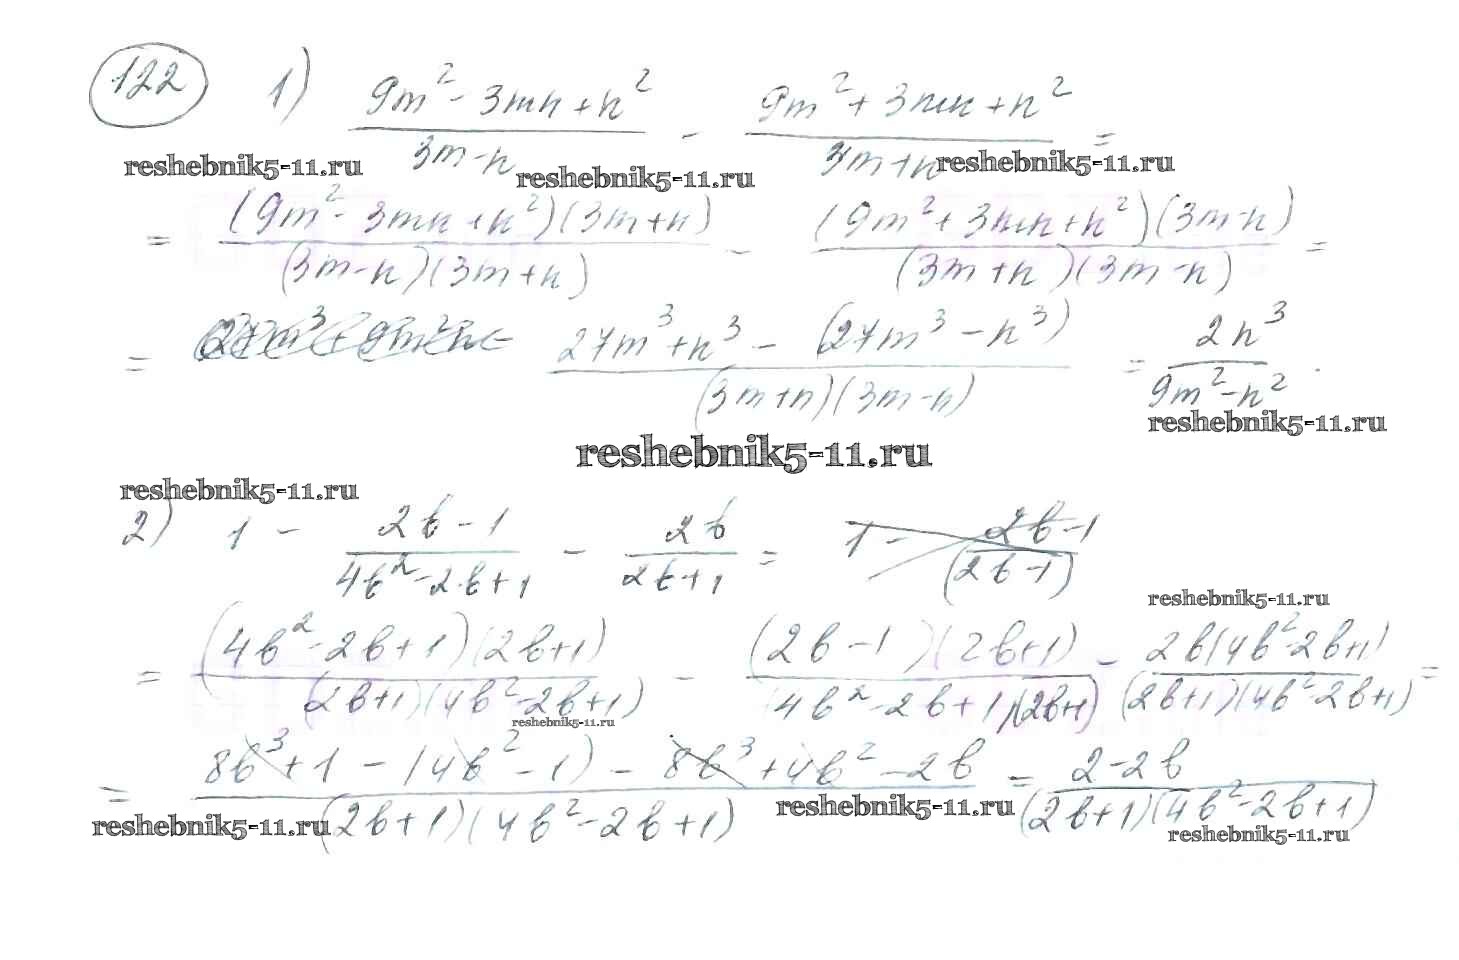 122 1) (9m² - 3mn + n²)/(3m - n) - (9m² + 3mn + n²)/(3m + n) =
reshebnik5-11.ru reshebnik5-11.ru reshebnik5-11.ru
= (9m² - 3mn + n²)(3m + n)/(3m - n)(3m + n) - (9m² + 3mn + n²)(3m - n)/(3m + n)(3m - n) =
= (27m³ + n³ - (27m³ - n³))/(3m + n)(3m - n) = 2n³/(9m² - n²).
reshebnik5-11.ru
reshebnik5-11.ru
reshebnik5-11.ru
2) 1 - (2b - 1)/(4b² - 2b + 1) - 2b/(2b + 1) = 1 - (2b - 1)/(2b - 1)
reshebnik5-11.ru
= (4b² - 2b + 1)(2b + 1)/(2b + 1)(4b² - 2b + 1) - (2b - 1)(2b + 1)/(4b² - 2b + 1)(2b + 1) - 2b(4b² - 2b + 1)/(2b + 1)(4b² - 2b + 1) =
reshebnik5-11.ru
= (8b³ + 1 - (4b² - 1) - 8b³ + 4b² - 2b)/(2b + 1)(4b² - 2b + 1) = (2 - 2b)/(2b + 1)(4b² - 2b + 1)
reshebnik5-11.ru reshebnik5-11.ru reshebnik5-11.ru